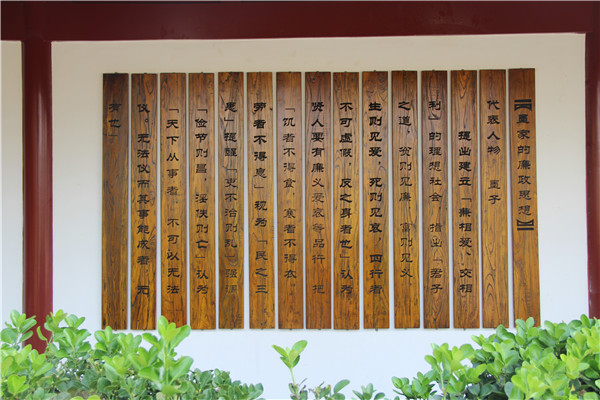 【墨家的廉政思想】
代表人物：墨子
提出建立「兼相爱、交相
利」的理想社会。指出「君子
之道，贫则见廉，富则见义，
生则见爱，死则见哀，四行者
不可虚假，反之身者也」认为
贤人要有廉义爱哀等品行，把
「饥者不得食，寒者不得衣，
劳者不得息」视为「民之三
患」提醒「吏不治则乱」强调
「俭节则昌，淫佚则亡」认为
「天下从事者，不可以无法
仪。无法仪而其事能成者，无
有也」